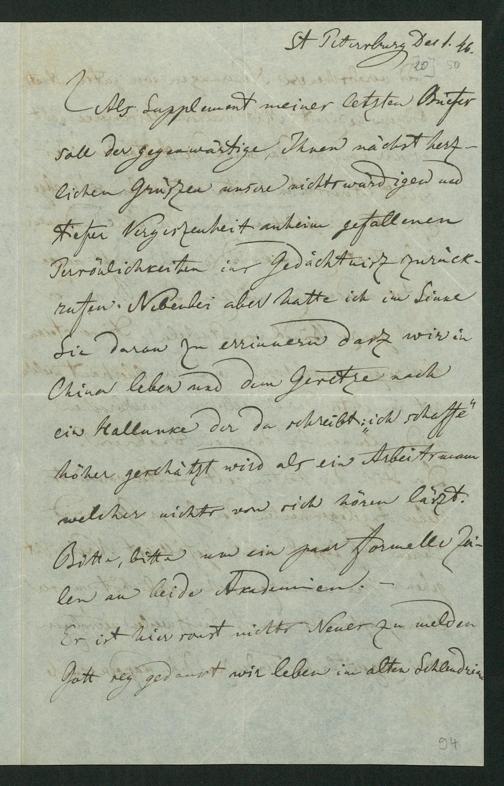 St Petersburg Dec 1. 46.
[20] 50
Als Supplement meiner letzten Briefes
soll der gegenwärtige, Ihnen nächst herz-
lichen Grüszen unsere nichtswürdigen und
tiefer Vergeszenheit anheim gefallenen
Persönlichkeiten ins Gedächtnisz zurück-
rufen. Nebenbei aber hatte ich im Sinne
Sie daran zu errinnern dasz wir in
China leben und dem Gesetze nach
ein Hallunke der da schreibt: „ich schaffe"
höher geschätzt wird als ein Arbeitsmann
welcher nichts von sich hören läszt.
Bitte, bitte um ein paar formelle Zei-
len an beide Akademien. –
Es ist hier sonst nichts Neues zu melden
Gott sey gedankt wir leben im alten Schlendrian
94